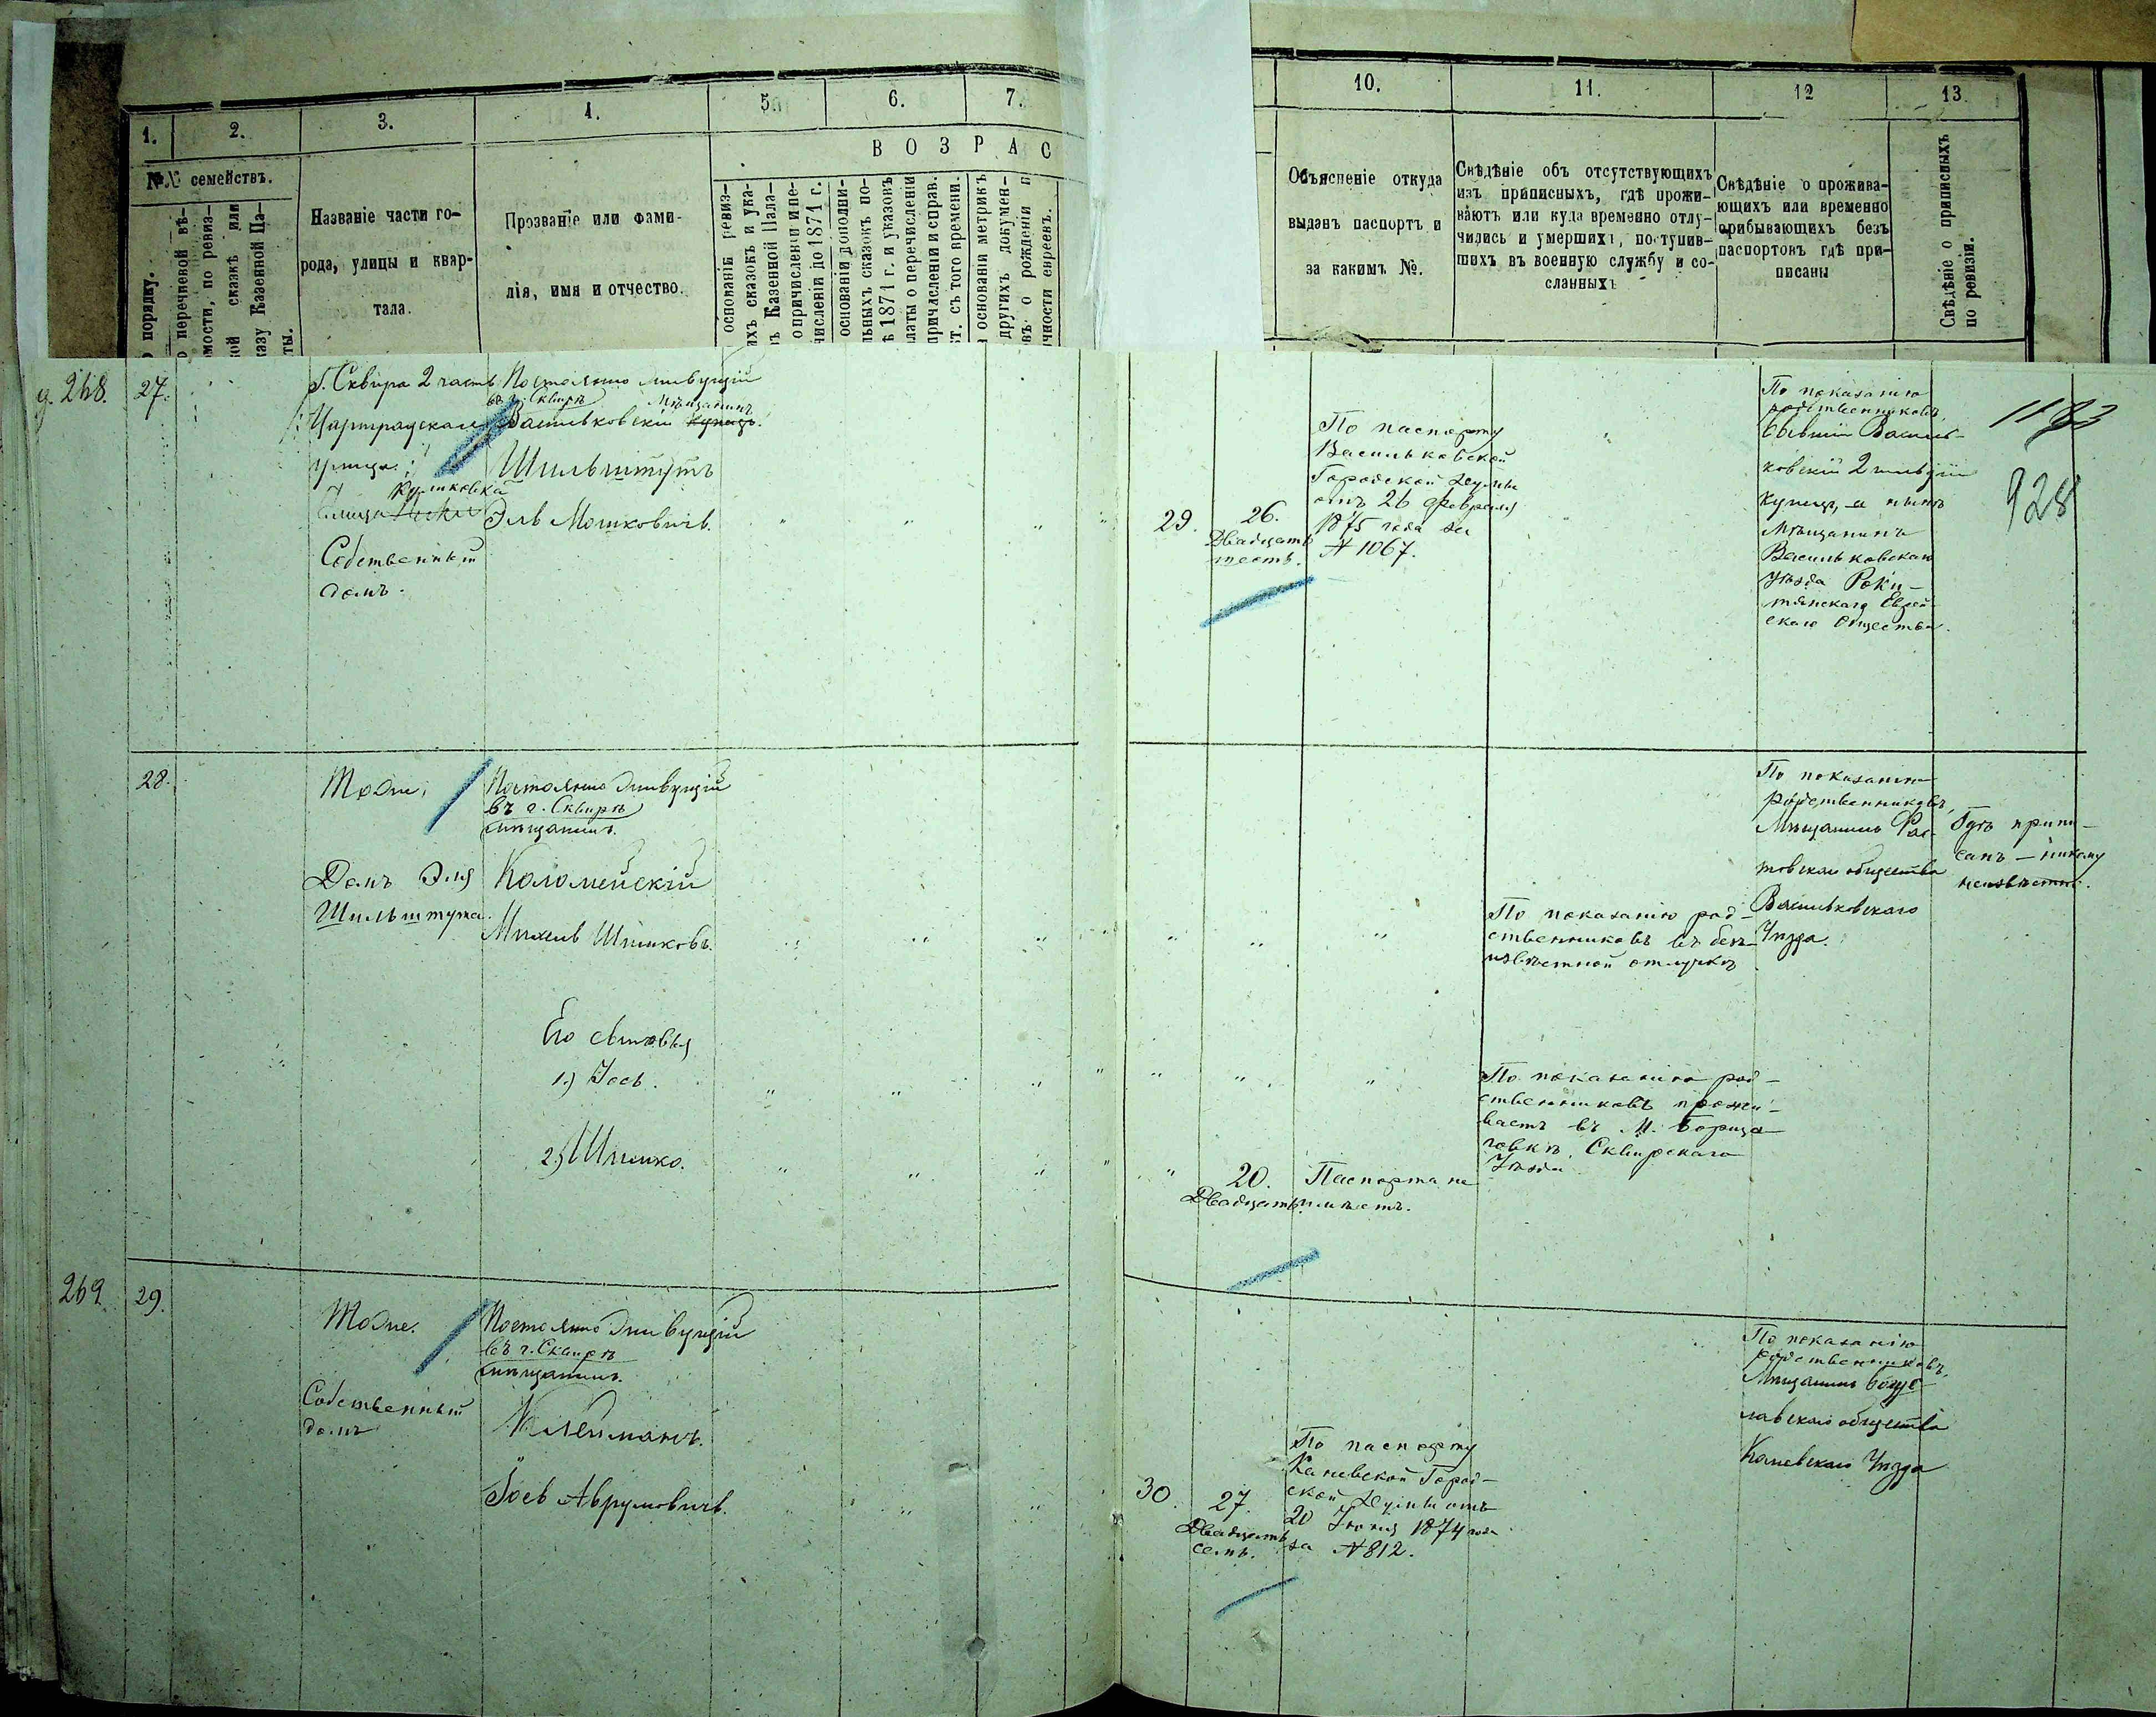 1.
2.
3.
4.
5.
6.
7.
10.
11.
12
13.
ВОЗРАС
№№ семействъ.
порядку.
перечневой вѣ-
мости, по ревиз-
ой сказкѣ или
казу Казенной Па-
ты.
Названіе части го-
рода, улицы и квар-
тала.
Прозваніе или фами-
лія, имя и отчество.
основаніи ревиз-
ихъ сказокъ и ука-
ъ Казенной Пала-
о причисленіи и пе-
численіи до 1871 г.
основаніи дополни-
льныхъ сказокъ по-
ѣ 1871 г. и указовъ
латы о перечисленіи
причисленіи и справ.
ст. съ того времени.
основаніи метрикъ
другихъ докумен-
овъ о рожденіи п
ичности евреевъ.
Объясненіе откуда
выданъ паспортъ и
за какимъ №.
Свѣдѣніе объ отсутствующихъ
изъ приписныхъ, гдѣ прожи-
ваютъ или куда временно отлу-
чились и умершихъ, поступив-
шихъ въ военную службу и со-
сланныхъ
Свѣдѣніе о прожива-
ющихъ или временно
прибывающихъ безъ
паспортовъ гдѣ при-
писаны
Свѣдѣніе о приписныхъ
по ревизіи.
д. 268.
27.
Г. Сквира 2 часть
Цариградская
улица.
Куликовка
улица
Собственный
домъ.
Постоянно живущій
въ г. Сквирѣ
Мѣщанинъ
Васильковскій Купецъ.
Шильштутъ
Эль Мошковичъ.
29.
26.
Двадцать
шесть.
По паспорту
Васильковской
Городской Думы
отъ 26 февраля
1875 года за
№ 1067.
По показанію
родственниковъ
бывшій Василь-
ковскій 2 гильдіи
купецъ, а нынѣ
Мѣщанинъ
Васильковскаго
Уѣзда Роки-
тянскаго Еврей-
скаго Общества.
1183
928
28.
Тоже.
Домъ Эля
Шильштута.
Постоянно живущій
въ г. Сквирѣ
мѣщанинъ.
Коломейскій
Михель Шимковъ.
По показанію род-
ственниковъ въ без-
извѣстной отлучкѣ
По показанію
родственниковъ,
Мѣщанинъ Рас-
товскаго общества
Васильковскаго
Уѣзда.
Гдѣ припи-
санъ – никому
неизвѣстно.
Его сыновья
1.) Іось.
По показанію род-
ственниковъ прожи-
ваетъ въ М. Борща-
говкѣ, Сквирскаго
Уѣзда
2.) Шимко.
20.
Двадцать.
Паспорта не
имѣетъ.
269.
29.
Тоже.
Собственный
домъ
Постоянно живущій
въ г. Сквирѣ
мѣщанинъ.
Клейманъ.
Іось Аврумовичъ.
30.
27.
Двадцать
семь.
По паспорту
Каневской Город-
ской Думы отъ
20 Іюня 1874 года
за № 812.
По показанію
родственниковъ,
Мѣщанинъ Богу-
славскаго общества
Каневскаго Уѣзда